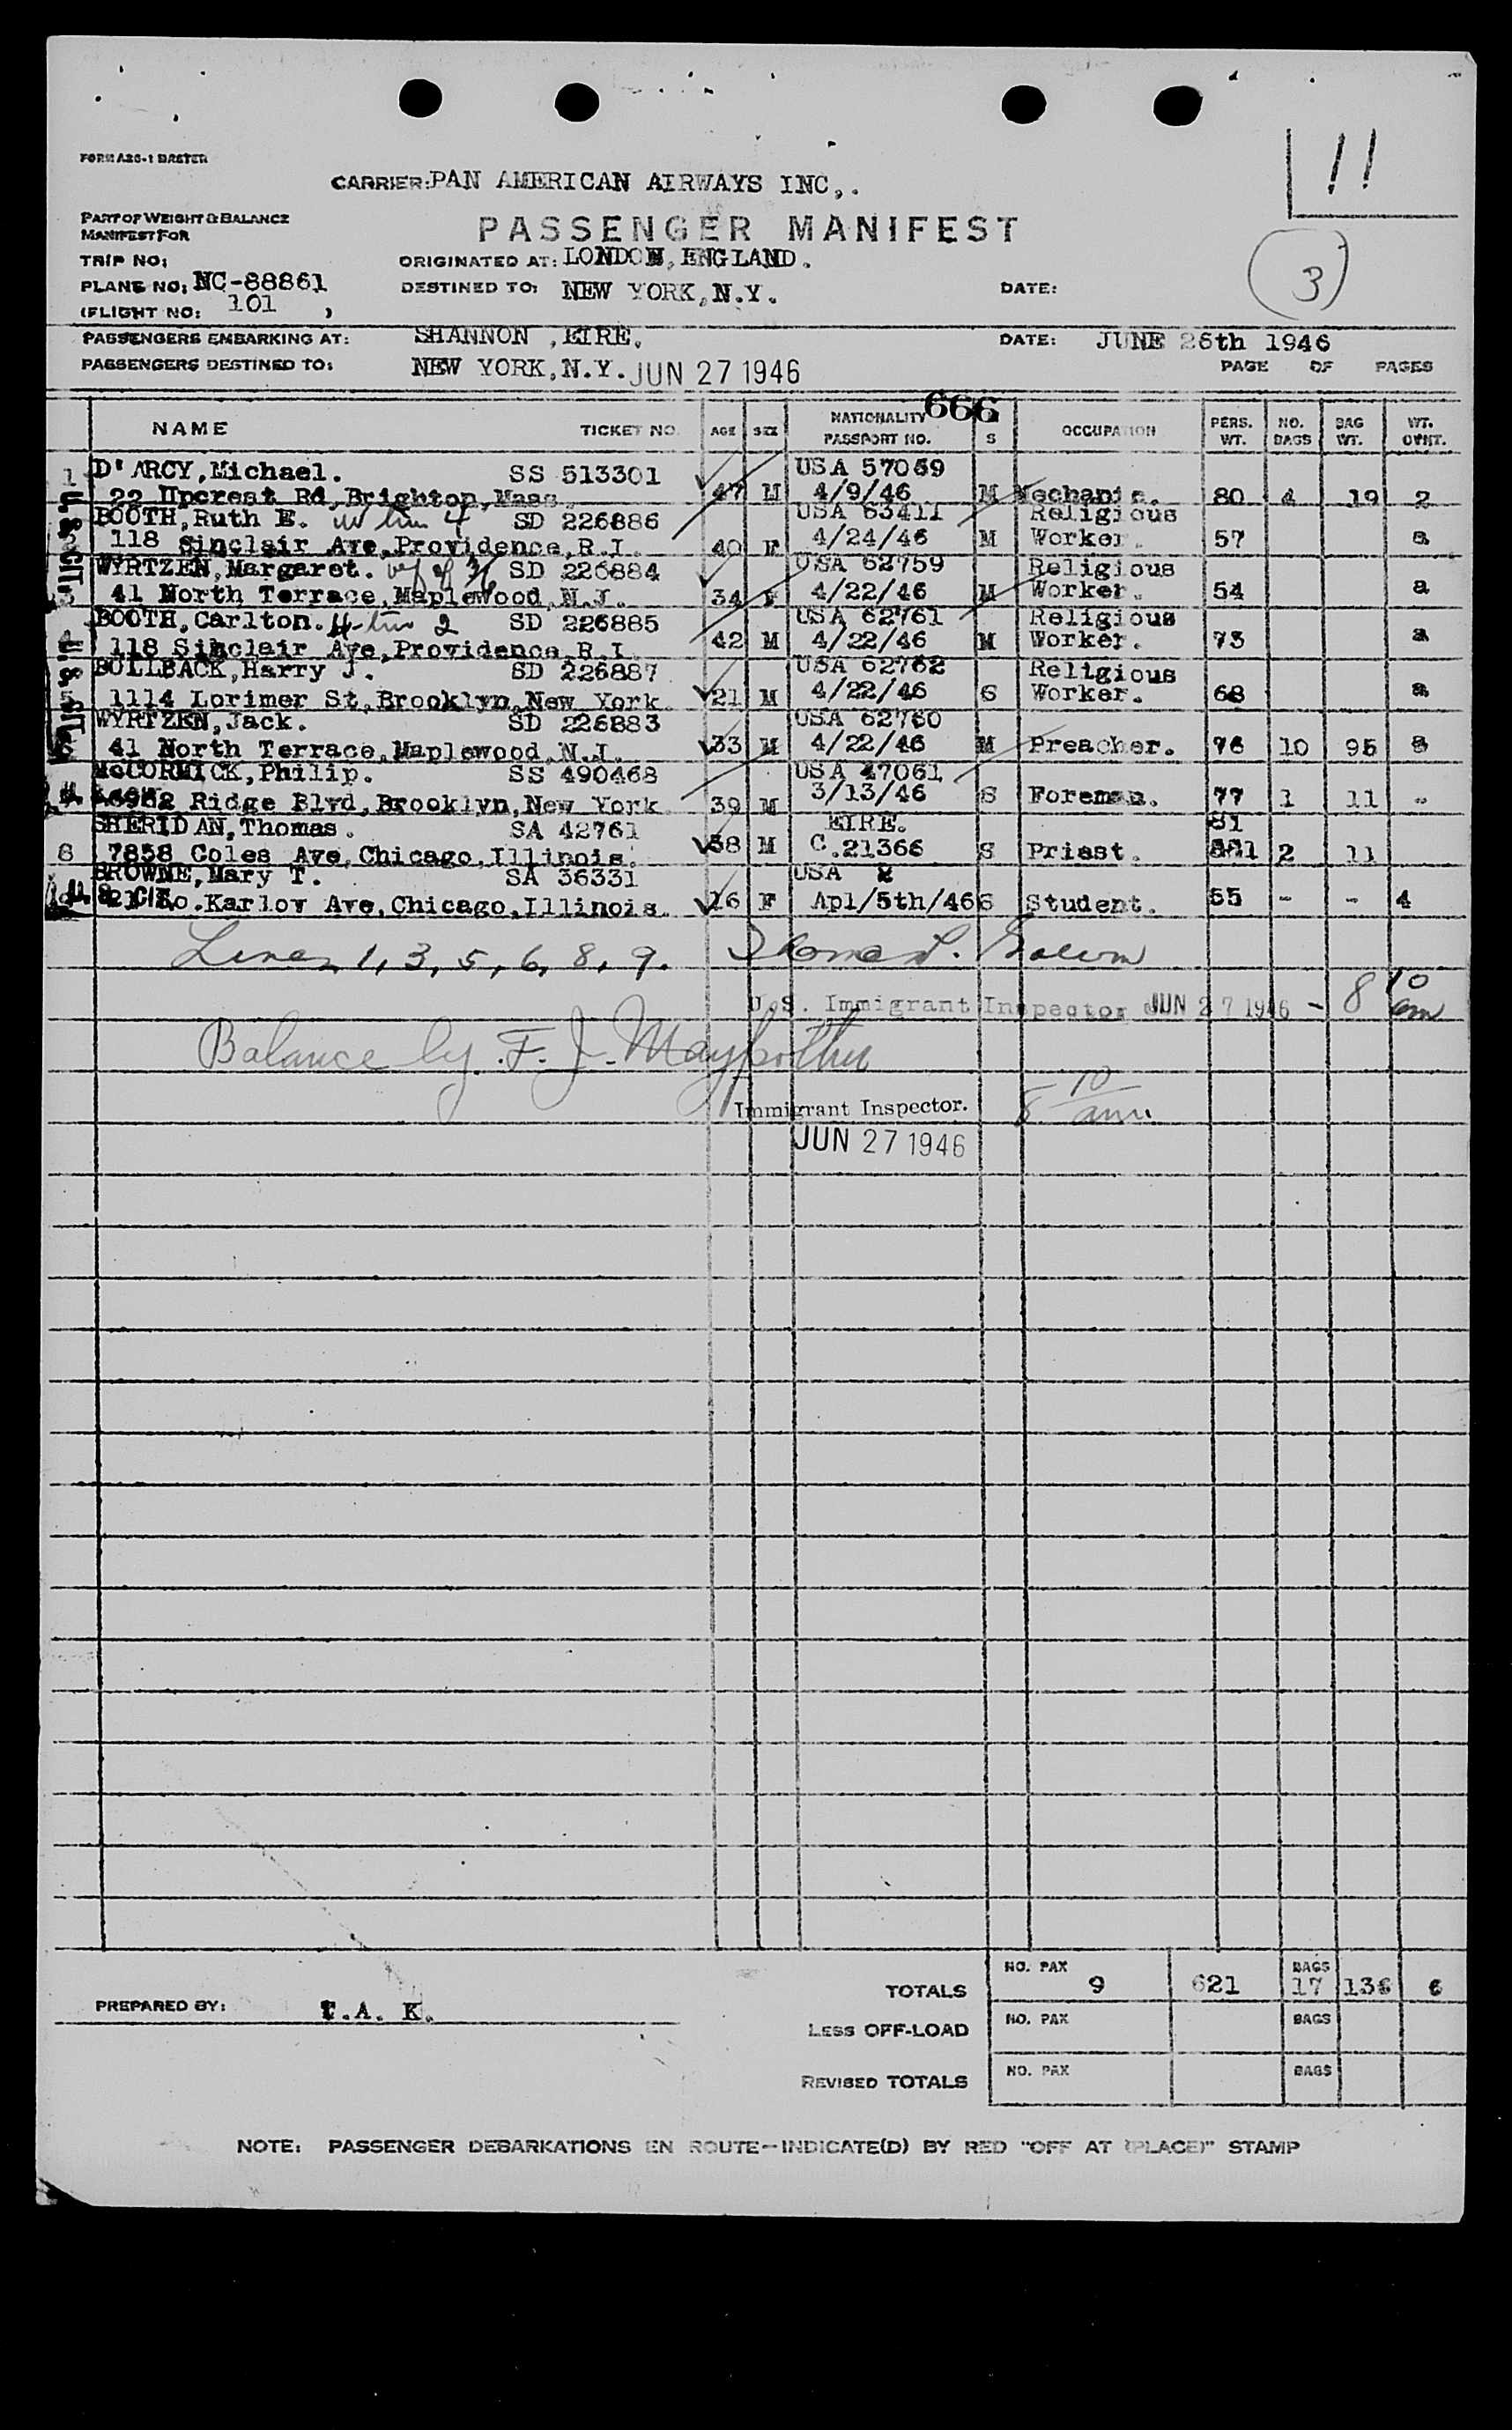 11
FORM A26-1 MASTER
CARRIER: PAN AMERICAN AIRWAYS INC,.
PART OF WEIGHT & BALANCE
MANIFEST FOR
PASSENGER MANIFEST
TRIP NO:
ORIGINATED AT: LONDON, ENGLAND.
(3)
PLANE NO: NC-88861
DESTINED TO: NEW YORK, N.Y.
DATE:
(FLIGHT NO: 101 )
PASSENGERS EMBARKING AT: SHANNON ,EIRE.
DATE: JUNE 26th 1946
PASSENGERS DESTINED TO: NEW YORK, N.Y. JUN 27 1946
PAGE OF PAGES
666
NAME TICKET NO. AGE SEX NATIONALITY PASSPORT NO. S OCCUPATION PERS. WT. NO. BAGS BAG WT. WT. OVHT.
1 D'ARCY, Michael. SS 513301 USA 57059
22 Upcrest Rd, Brighton, Mass. 47 M 4/9/46 M Mechanic. 80 4 19 2
BOOTH, Ruth E. w line 4 SD 226886 USA 63411 Religious
118 Sinclair Ave, Providence, R.I. 40 F 4/24/46 M Worker. 57 a
WYRTZEN, Margaret. SD 226884 USA 62759 Religious
41 North Terrace, Maplewood, N.J. 34 F 4/22/46 M Worker. 54 a
BOOTH, Carlton. H-line 2 SD 226885 USA 62761 Religious
118 Sinclair Ave, Providence, R.I. 42 M 4/22/46 M Worker. 73 a
BOLLBACK, Harry J. SD 226887 USA 62762 Religious
5 1114 Lorimer St, Brooklyn, New York 21 M 4/22/46 S Worker. 68 a
WYRTZEN, Jack. SD 226883 USA 62760
41 North Terrace, Maplewood, N.J. 33 M 4/22/46 M Preacher. 76 10 95 a
McCORMICK, Philip. SS 490468 USA 47061
Ridge Blvd, Brooklyn, New York 39 M 3/13/46 S Foreman. 77 1 11 -
SHERIDAN, Thomas. SA 42761 EIRE. 81
8 7858 Coles Ave, Chicago, Illinois. 38 M C.21366 S Priest. 2 11
BROWNE, Mary T. SA 36331 USA 2
So. Karlov Ave, Chicago, Illinois. 16 F Apl/5th/46 S Student. 55 - - 4
U.S. CIT.
Lines 1, 3, 5, 6, 8, 9.
U.S. Immigrant Inspector JUN 27 1946 - 8 10 am
Balance by F. J.
Immigrant Inspector. 8 10 am.
JUN 27 1946
TOTALS NO. PAX 9 621 BAGS 17 136 6
PREPARED BY: T.A. K.
LESS OFF-LOAD NO. PAX BAGS
REVISED TOTALS NO. PAX BAGS
NOTE: PASSENGER DEBARKATIONS EN ROUTE-INDICATE(D) BY RED "OFF AT (PLACE)" STAMP